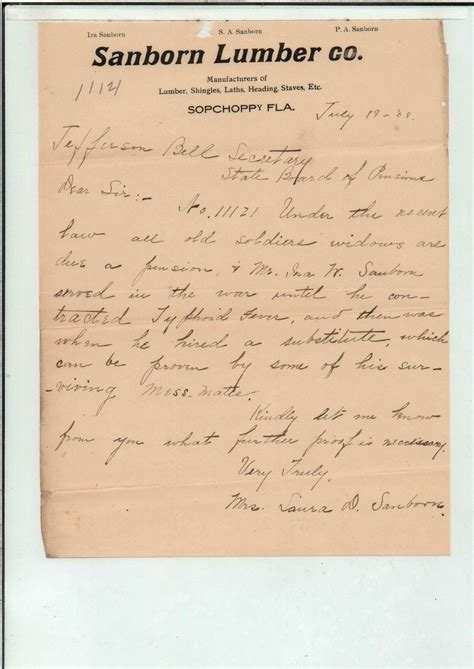 Ira Sanborn S. A. Sanborn P. A. Sanborn
Sanborn Lumber Co.
Manufacturers of
Lumber, Shingles, Laths, Heading, Staves, Etc.
11121
SOPCHOPPY FLA.
July 19-09.
Jefferson Bell Secretary
State Board of Pensions
Dear Sir:-
No. 11121 Under the recent
law all old soldiers widows are
due a pension, & Mr. Ira W. Sanborn
served in the war until he con-
tracted Typhoid Fever, and then was
when he hired a substitute, which
can be proven by some of his sur-
viving Mess-Matts.
Kindly let me know
from you what further proof is necessary.
Very Truly,
Mrs. Laura D. Sanborn.